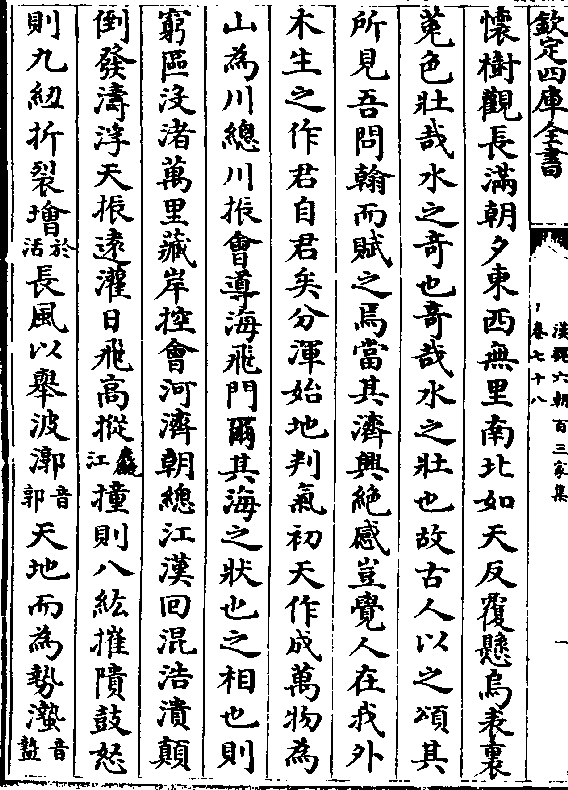 欽定四庫全書
漢魏六朝百三家集
卷七十八
一
懷樹觀長滿朝夕東西無里南北如天反覆懸烏表裏
菟色壯哉水之奇也奇哉水之壯也故古人以之頌其
所見吾問翰而賦之焉當其濟興絶感豈覺人在我外
木生之作君自君矣分渾始地判氣初天作成萬物為
山為川總川振會導海飛門爾其海之狀也之相也則
窮區沒渚萬里藏岸控會河濟朝總江漢回混浩潰顛
倒發濤浮天振遠灌日飛高摐麄江撞則八紘摧隤鼓怒
則九紐折裂於活長風以舉波漷音郭天地而為勢音